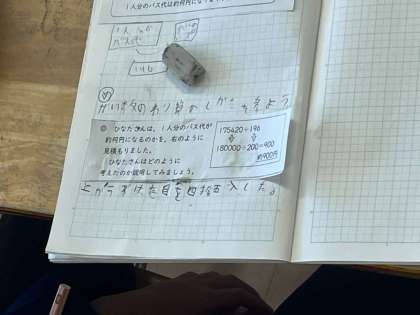 1人分のバス代は約何円にな
1人分の
バス代
196
め
がい数のわり算のしかたを考えよう
◎ ひなたさんは、1人分のバス代が
約何円になるのかを、右のように
見積もりました。
ひなたさんはどのように
考えたのか説明してみましょう。
175420÷196
180000÷200=900
約900円
上から けた目を四捨五入した。